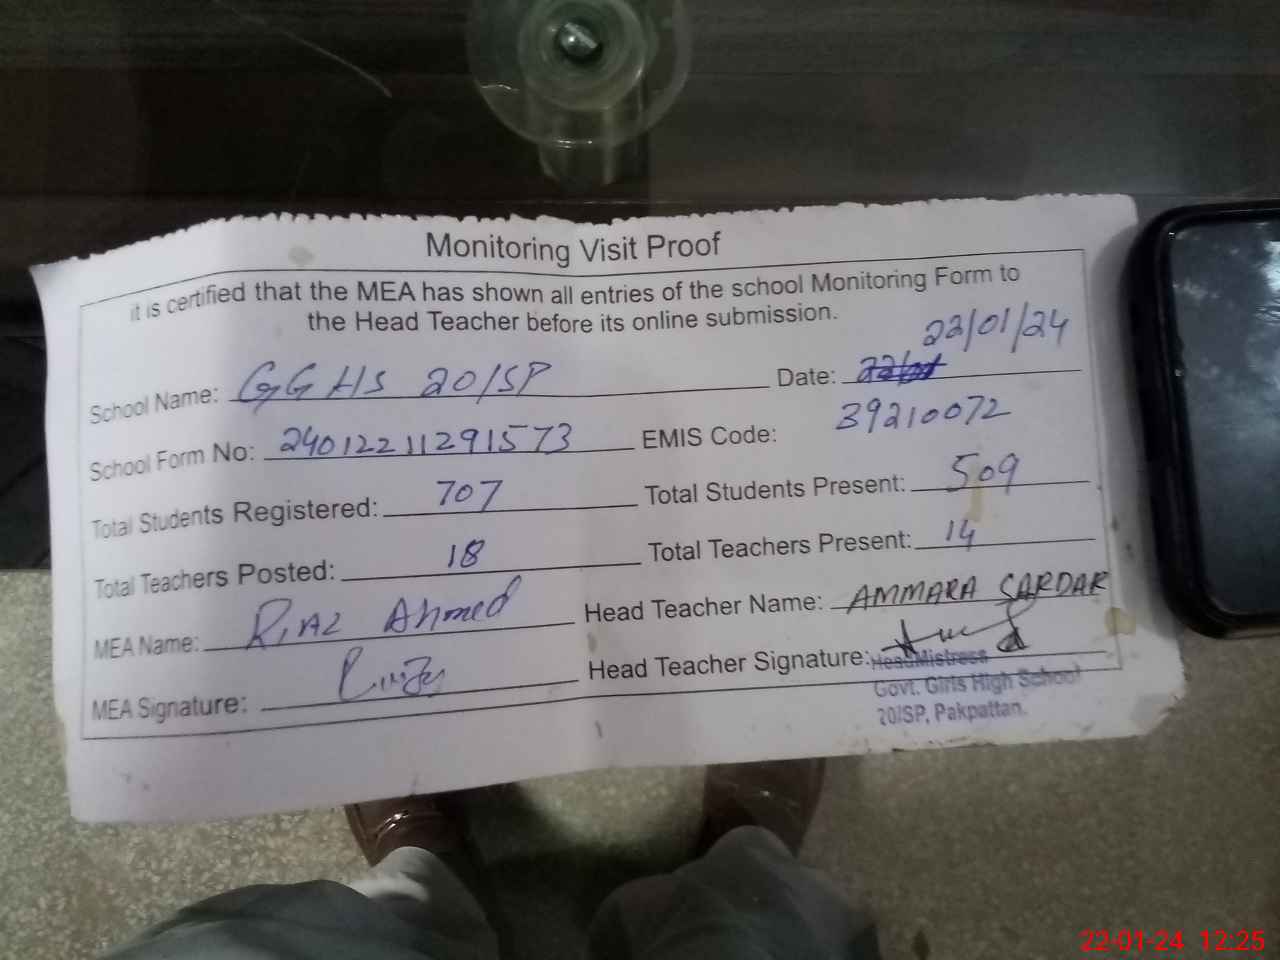 Monitoring Visit Proof
it is certified that the MEA has shown all entries of the school Monitoring Form to
the Head Teacher before its online submission.
School Name: GGHS 20/SP Date: 22/01/24
School Form No: 24012211291573 EMIS Code: 39210072
Total Students Registered: 707 Total Students Present: 509
Total Teachers Posted: 18 Total Teachers Present: 14
MEA Name: Riaz Ahmed Head Teacher Name: AMMARA SARDAR
MEA Signature: Head Teacher Signature:
HeadMistress
Govt. Girls High School
20/SP, Pakpattan.
22-01-24 12:25